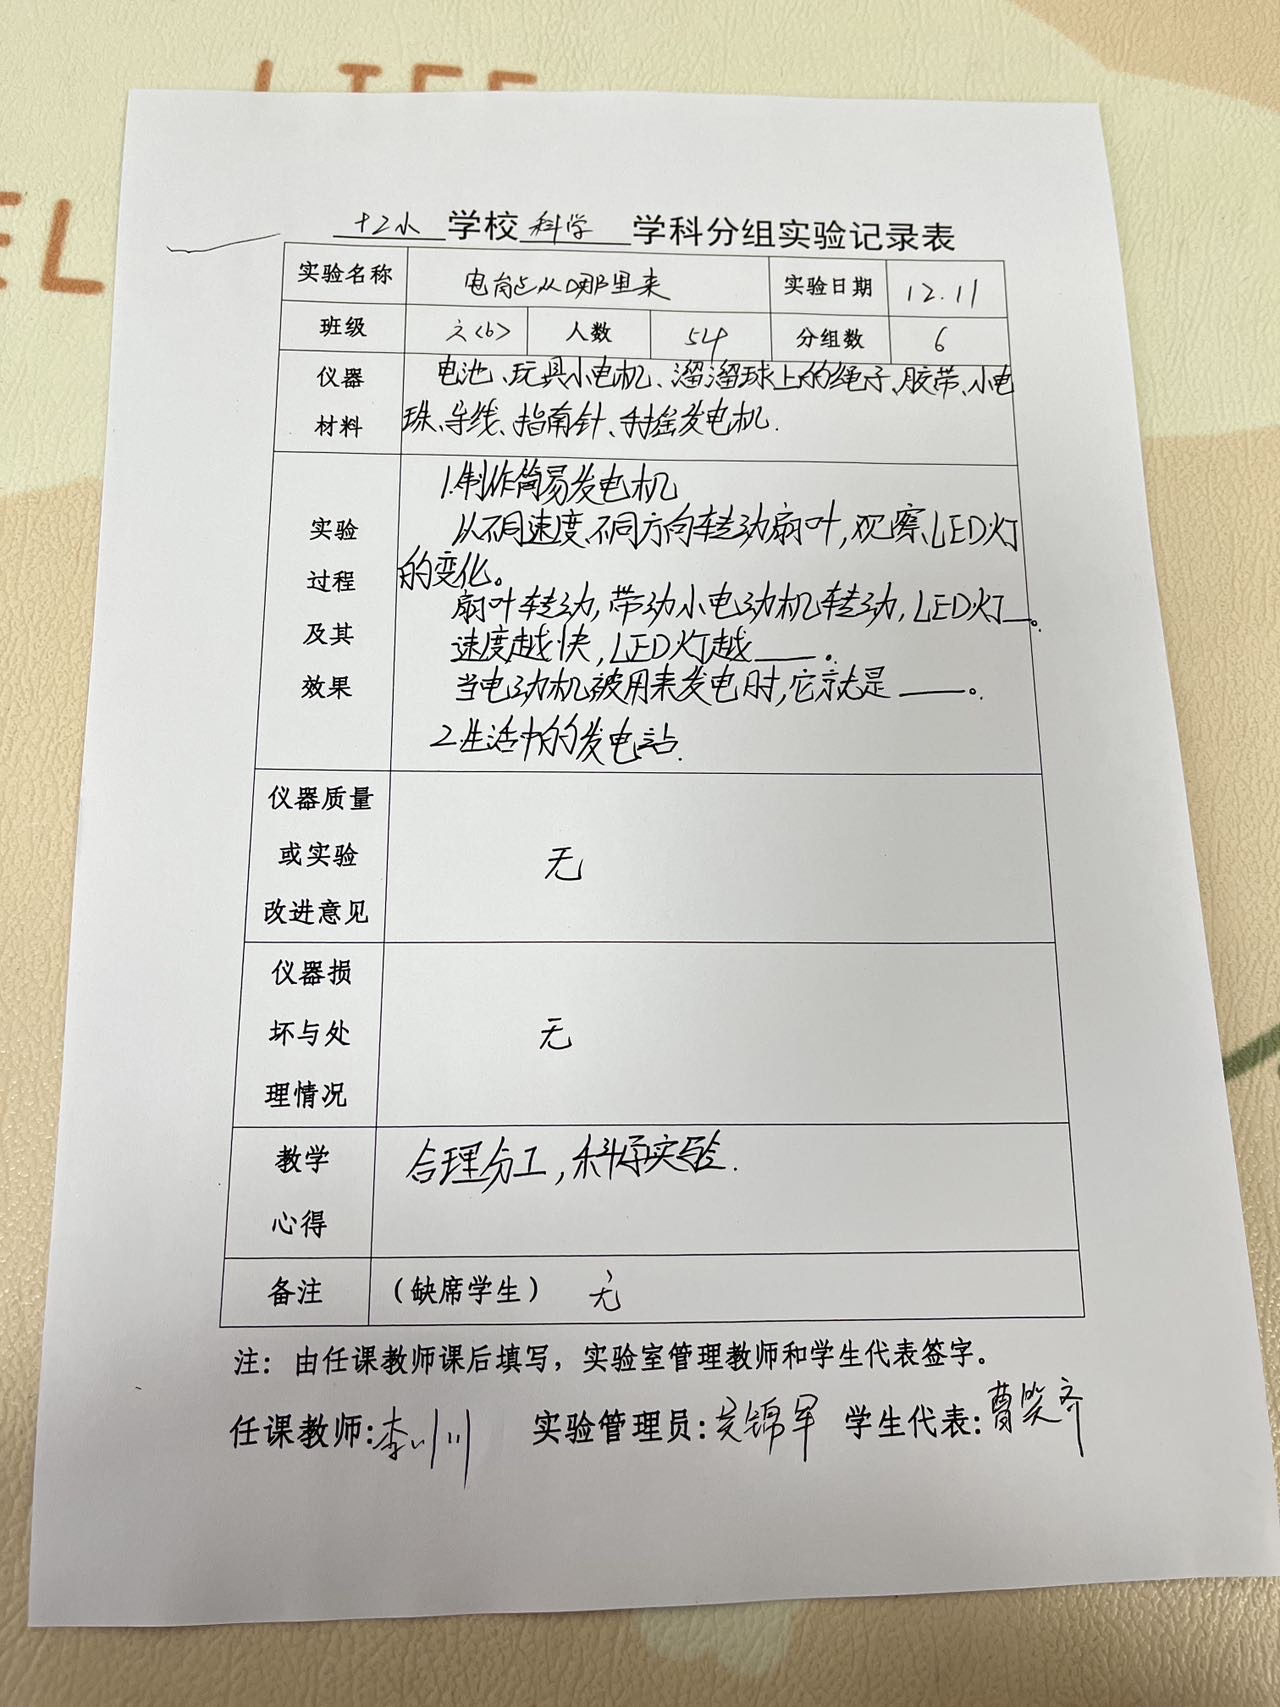 LIFE
EL
十二小 学校 科学 学科分组实验记录表
实验名称 电能从哪里来 实验日期 12.11
班级 六<6> 人数 54 分组数 6
仪器材料 电池、玩具小电机、溜溜球上的绳子、胶带、小电
珠、导线、指南针、手摇发电机.
实验过程及其效果
1.制作简易发电机
以不同速度、不同方向转动扇叶,观察LED灯
的变化。
扇叶转动,带动小电动机转动,LED灯__。
速度越快,LED灯越___.
当电动机被用来发电时,它就是___。
2.生活中的发电站.
仪器质量或实验改进意见 无
仪器损坏与处理情况 无
教学心得 合理分工,科学实验.
备注 (缺席学生) 无
注:由任课教师课后填写,实验室管理教师和学生代表签字。
任课教师:李 实验管理员:锦军 学生代表:曹笑齐